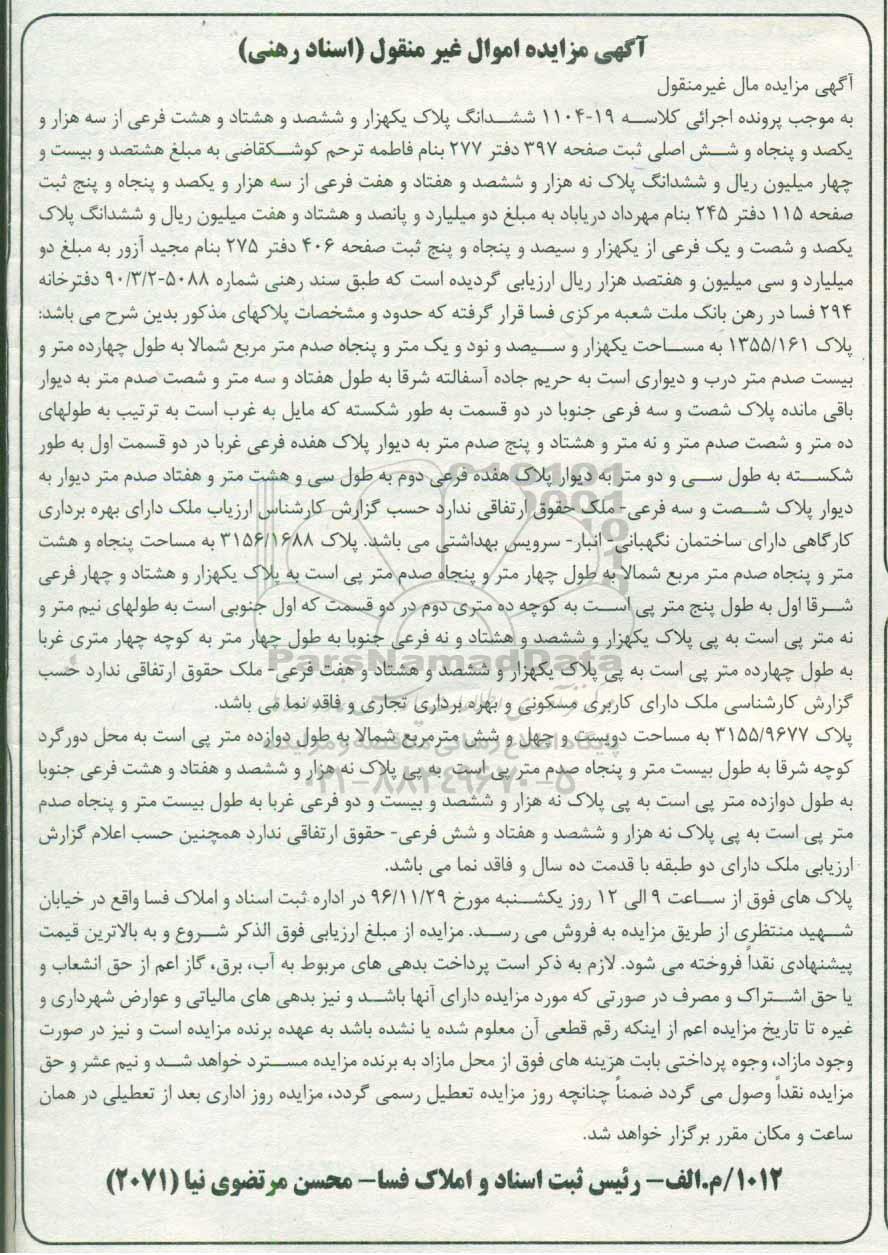 آگهی مزایده اموال غیر منقول (اسناد رهنی)
آگهی مزایده مال غیرمنقول
به موجب پرونده اجرائی کلاسه ۱۹-۱۱۰۴ ششدانگ پلاک یکهزار و ششصد و هشتاد و هشت فرعی از سه هزار و
یکصد و پنجاه و شش اصلی ثبت صفحه ۳۹۷ دفتر ۲۷۷ بنام فاطمه ترحم کوشکقاضی به مبلغ هشتصد و بیست و
چهار میلیون ریال و ششدانگ پلاک نه هزار و ششصد و هفتاد و هفت فرعی از سه هزار و یکصد و پنجاه و پنج ثبت
صفحه ۱۱۵ دفتر ۲۴۵ بنام مهرداد دریاباد به مبلغ دو میلیارد و پانصد و هشتاد و هفت میلیون ریال و ششدانگ پلاک
یکصد و شصت و یک فرعی از یکهزار و سیصد و پنجاه و پنج ثبت صفحه ۴۰۶ دفتر ۲۷۵ بنام مجید آزور به مبلغ دو
میلیارد و سی میلیون و هفتصد هزار ریال ارزیابی گردیده است که طبق سند رهنی شماره ۵۰۸۸-۹۰/۳/۲ دفترخانه
۲۹۴ فسا در رهن بانک ملت شعبه مرکزی فسا قرار گرفته که حدود و مشخصات پلاکهای مذکور بدین شرح می باشد:
پلاک ۱۳۵۵/۱۶۱ به مساحت یکهزار و سیصد و نود و یک متر و پنجاه صدم متر مربع شمالا به طول چهارده متر و
بیست صدم متر درب و دیواری است به حریم جاده آسفالته شرقا به طول هفتاد و سه متر و شصت صدم متر به دیوار
باقی مانده پلاک شصت و سه فرعی جنوبا در دو قسمت به طور شکسته که مایل به غرب است به ترتیب به طولهای
ده متر و شصت صدم متر و نه متر و هشتاد و پنج صدم متر به دیوار پلاک هفده فرعی غربا در دو قسمت اول به طور
شکسته به طول سی و دو متر به دیوار پلاک هفده فرعی دوم به طول سی و هشت متر و هفتاد صدم متر دیوار به
دیوار پلاک شصت و سه فرعی- ملک حقوق ارتفاقی ندارد حسب گزارش کارشناس ارزیاب ملک دارای بهره برداری
کارگاهی دارای ساختمان نگهبانی- انبار- سرویس بهداشتی می باشد. پلاک ۳۱۵۶/۱۶۸۸ به مساحت پنجاه و هشت
متر و پنجاه صدم متر مربع شمالا به طول چهار متر و پنجاه صدم متر پی است به پلاک یکهزار و هشتاد و چهار فرعی
شرقا اول به طول پنج متر پی است به کوچه ده متری دوم در دو قسمت که اول جنوبی است به طولهای نیم متر و
نه متر پی است به پی پلاک یکهزار و ششصد و هشتاد و نه فرعی جنوبا به طول چهار متر به کوچه چهار متری غربا
به طول چهارده متر پی است به پی پلاک یکهزار و ششصد و هشتاد و هفت فرعی- ملک حقوق ارتفاقی ندارد حسب
گزارش کارشناسی ملک دارای کاربری مسکونی و بهره برداری تجاری و فاقد نما می باشد.
پلاک ۳۱۵۵/۹۶۷۷ به مساحت دویست و چهل و شش مترمربع شمالا به طول دوازده متر پی است به محل دورگرد
کوچه شرقا به طول بیست متر و پنجاه صدم متر پی است به پی پلاک نه هزار و ششصد و هفتاد و هشت فرعی جنوبا
به طول دوازده متر پی است به پی پلاک نه هزار و ششصد و بیست و دو فرعی غربا به طول بیست متر و پنجاه صدم
متر پی است به پی پلاک نه هزار و ششصد و هفتاد و شش فرعی- حقوق ارتفاقی ندارد همچنین حسب اعلام گزارش
ارزیابی ملک دارای دو طبقه با قدمت ده سال و فاقد نما می باشد.
پلاک های فوق از ساعت ۹ الی ۱۲ روز یکشنبه مورخ ۹۶/۱۱/۲۹ در اداره ثبت اسناد و املاک فسا واقع در خیابان
شهید منتظری از طریق مزایده به فروش می رسد. مزایده از مبلغ ارزیابی فوق الذکر شروع و به بالاترین قیمت
پیشنهادی نقداً فروخته می شود. لازم به ذکر است پرداخت بدهی های مربوط به آب، برق، گاز اعم از حق انشعاب و
یا حق اشتراک و مصرف در صورتی که مورد مزایده دارای آنها باشد و نیز بدهی های مالیاتی و عوارض شهرداری و
غیره تا تاریخ مزایده اعم از اینکه رقم قطعی آن معلوم شده یا نشده باشد به عهده برنده مزایده است و نیز در صورت
وجود مازاد، وجوه پرداختی بابت هزینه های فوق از محل مازاد به برنده مزایده مسترد خواهد شد و نیم عشر و حق
مزایده نقداً وصول می گردد ضمناً چنانچه روز مزایده تعطیل رسمی گردد، مزایده روز اداری بعد از تعطیلی در همان
ساعت و مکان مقرر برگزار خواهد شد.
۱۰۱۲/م.الف- رئیس ثبت اسناد و املاک فسا- محسن مرتضوی نیا (۲۰۷۱)
ParsNamadData
پایگاه اطلاع رسانی مناقصه و مزایده
۰۲۱-۸۸۳۴۹۶۷۰-۵